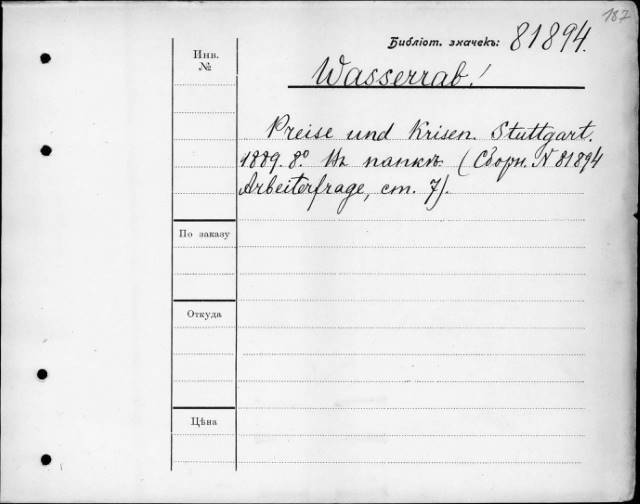 187
Библіот. значекъ: 81894.
Инв.
№
Wasserrab!
Preise und Krisen. Stuttgart.
1889. 8º. Въ папкѣ (Сборн. N 81894
Arbeiterfrage, ст. 7).
По заказу
Откуда
Цѣна